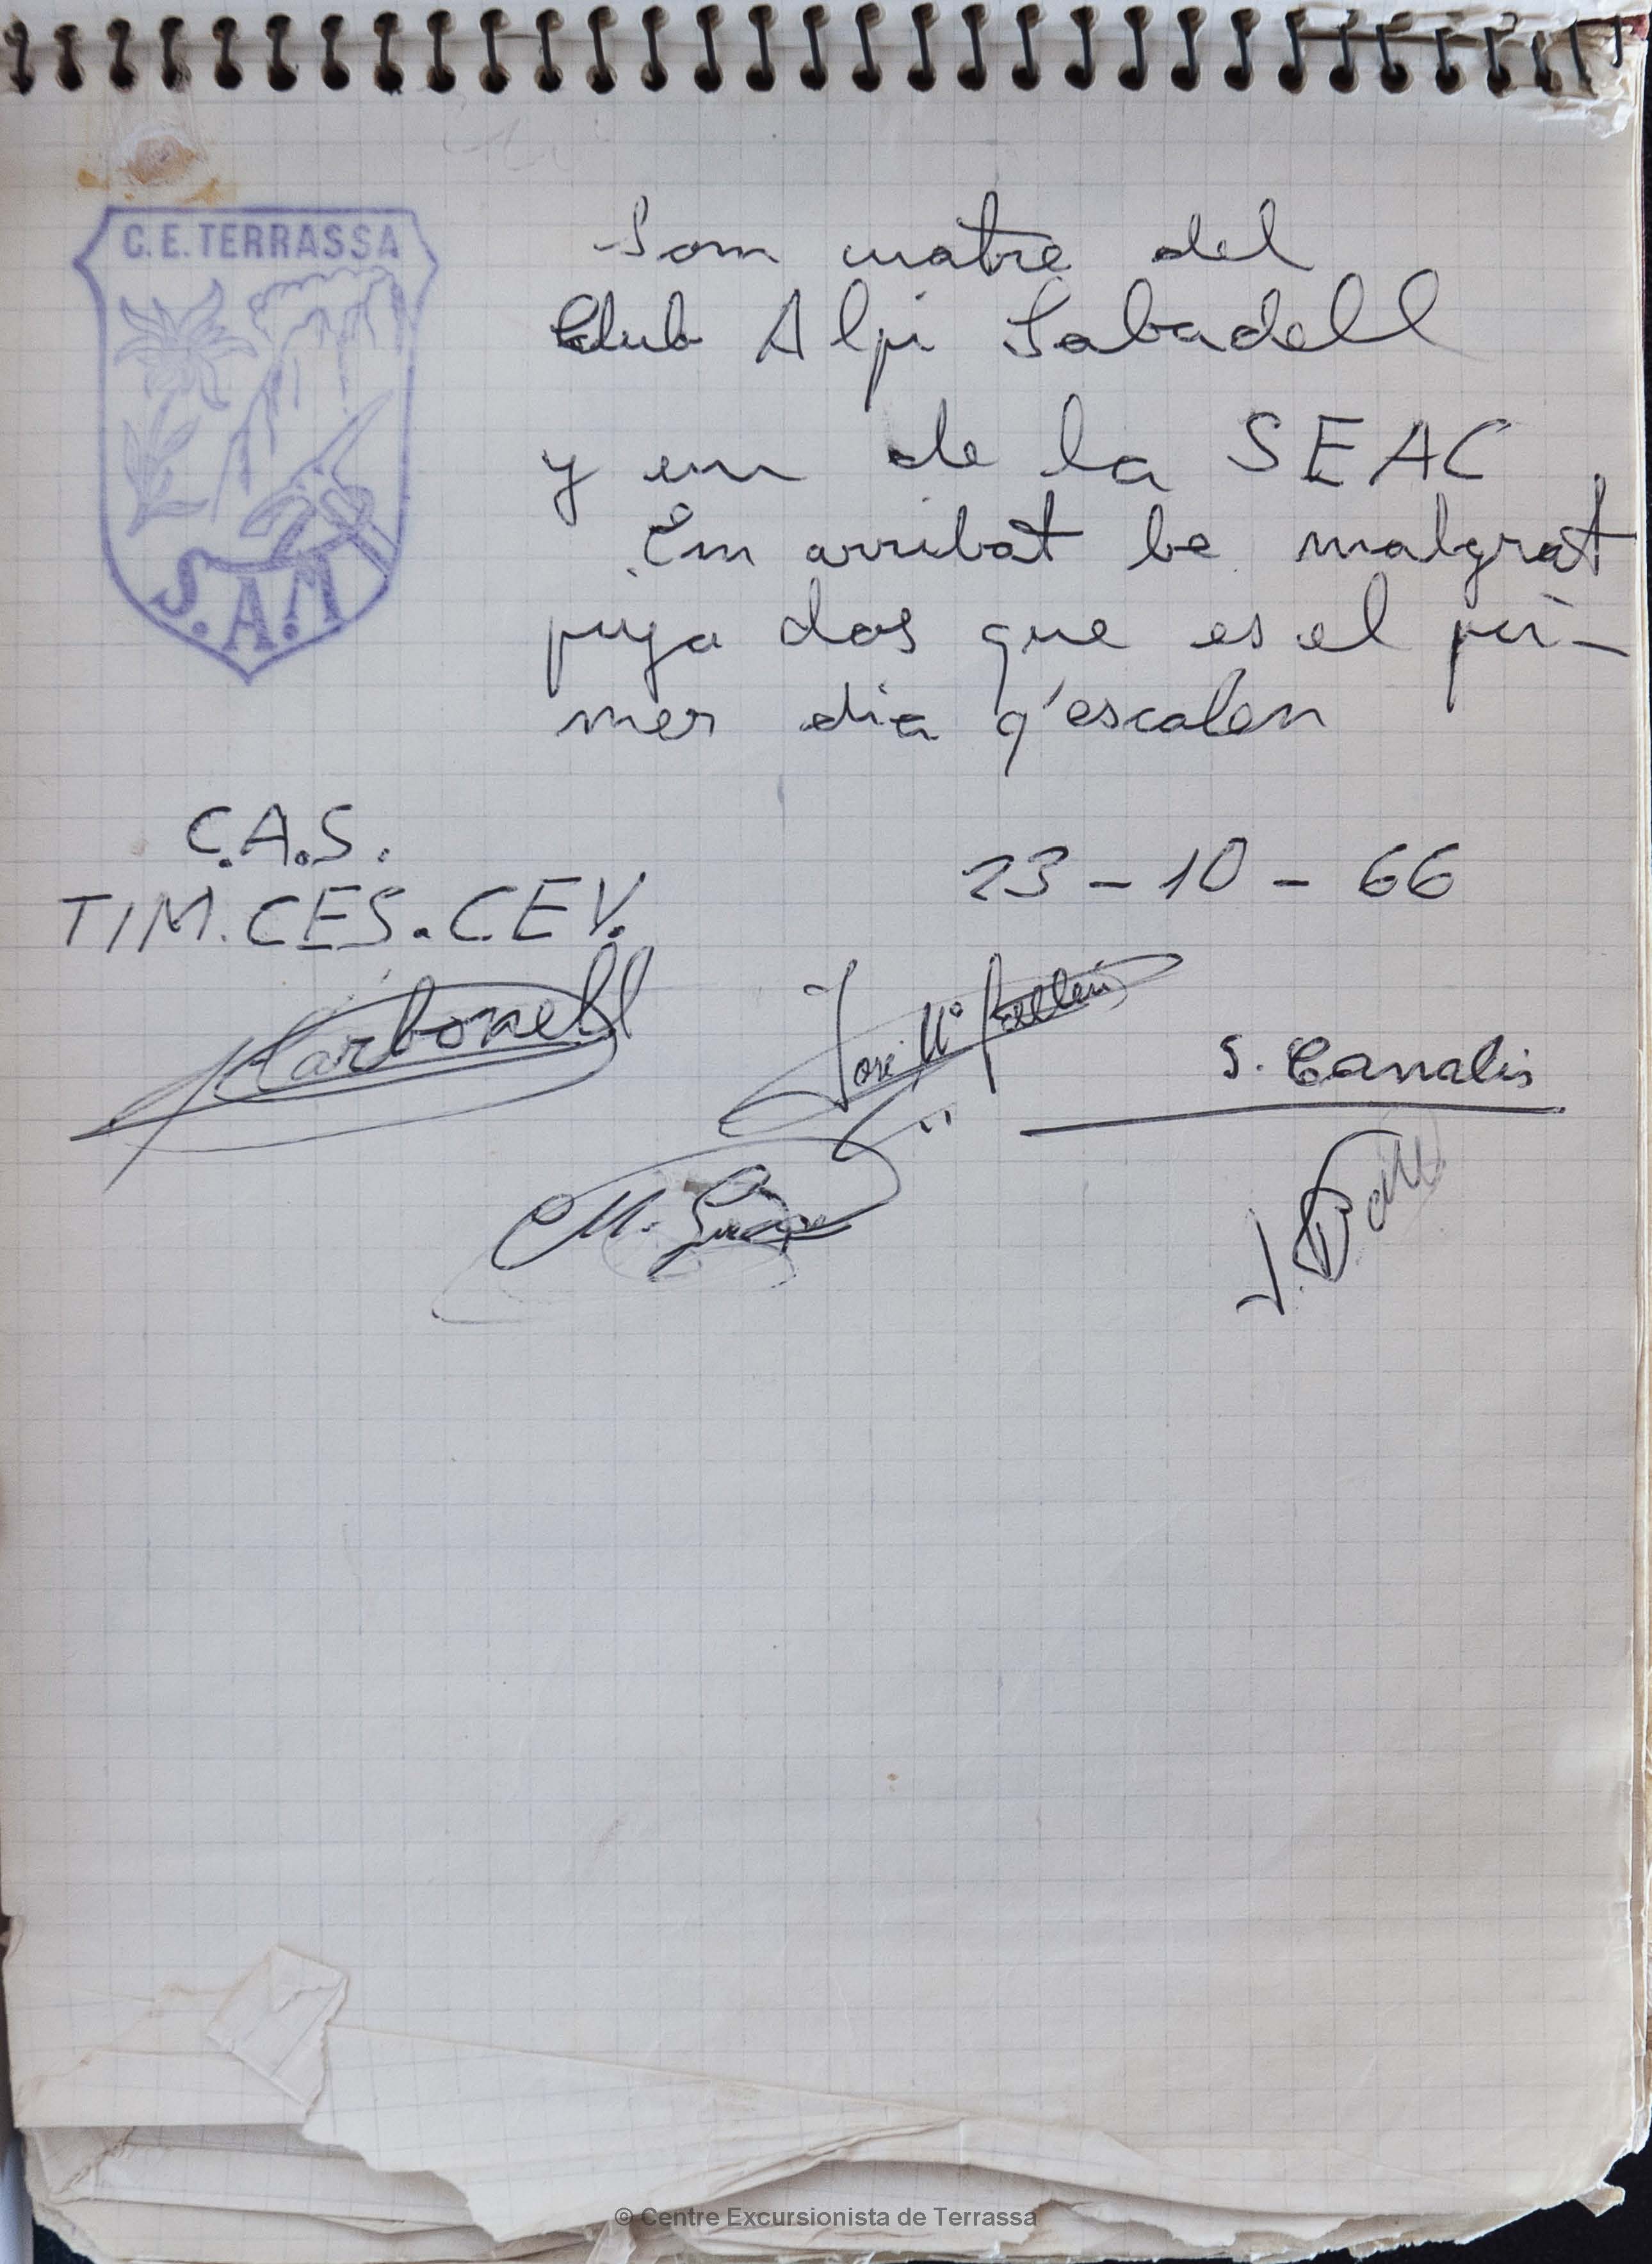 C.E. TERRASSA
S.A.M
Som cuatre del
Club Alpi Sabadell
y un de la SEAC
Em arribat be malgrat
puja dos que es el pri-
mer dia q'escalen
C.A.S.
TIM. CES. CEV.
23 - 10 - 66
Carbonell
José Mº
S. Canalis
M.
J.
© Centre Excursionista de Terrassa